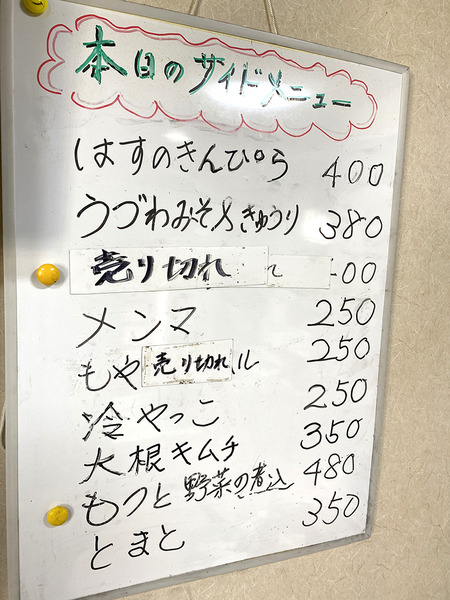 本日のサイドメニュー
はすのきんぴら 400
うづわみそ×きゅうり 380
売り切れ 00
メンマ 250
もや 売り切れ ル 250
冷やっこ 250
大根キムチ 350
もつと野菜の煮込 480
とまと 350